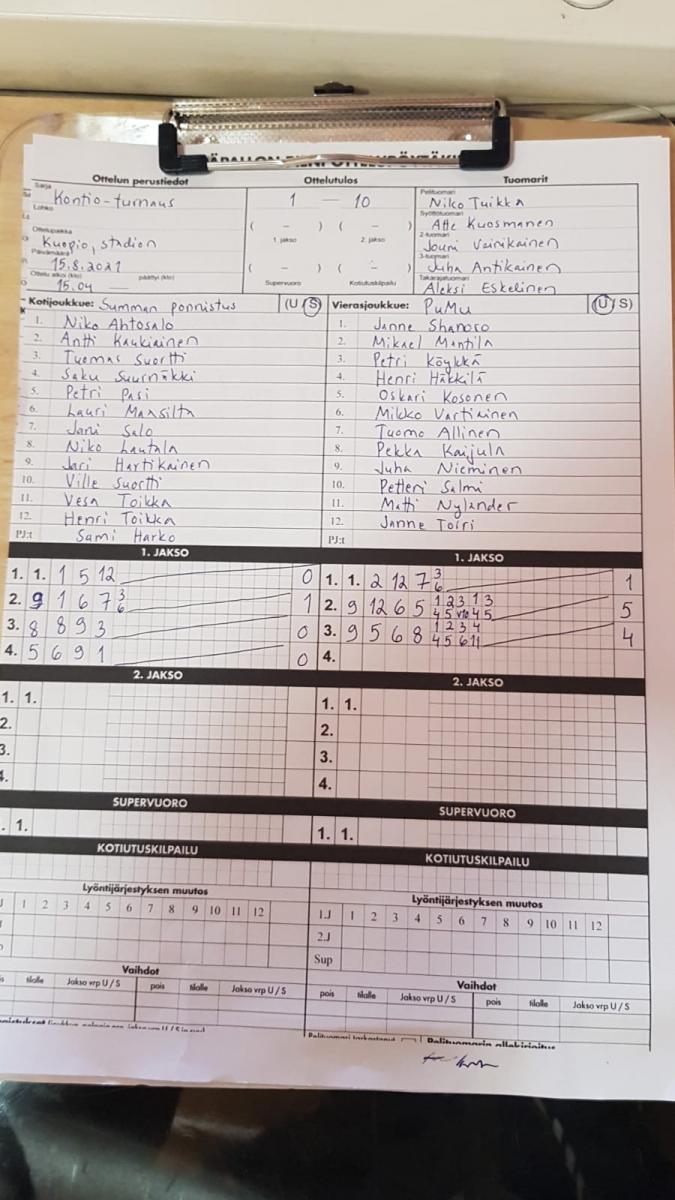 Ottelun perustiedot Ottelutulos Tuomarit
Sarja Kontio-turnaus
Lohko
1 — 10
Pelituomari Niko Tuikka
Syöttötuomari Atte Kuosmanen
Ottelupaikka Kuopio, stadion
( – ) ( – )
1. jakso 2. jakso
2-tuomari Jouni Vainikainen
Päivämäärä 15.8.2021
3-tuomari Juha Antikainen
( – ) ( – )
Supervuoro Kotiutuskilpailu
Ottelu alkoi (klo) päättyi (klo)
15.04 —
Takarajatuomari Aleksi Eskelinen
Kotijoukkue: Summan ponnistus (U S)
1. Niko Ahtosalo
2. Antti Kaukiainen
3. Tuomas Suortti
4. Saku Suurnäkki
5. Petri Pasi
6. Lauri Mansilta
7. Jani Salo
8. Niko Lautala
9. Jari Hartikainen
10. Ville Suortti
11. Vesa Toikka
12. Henri Toikka
PJ:t Sami Harko
Vierasjoukkue: PuMu (U S)
1. Janne
2. Mikael Mantila
3. Petri Köykkä
4. Henri Häkkilä
5. Oskari Kosonen
6. Mikko Vartiainen
7. Tuomo Allinen
8. Pekka Kaijula
9. Juha Nieminen
10. Petteri Salmi
11. Matti Nylander
12. Janne Toiri
PJ:t
1. JAKSO
1. 1. 1 5 12 0
2. 9 1 6 7 3 6 1
3. 8 8 9 3 0
4. 5 6 9 1 0
1. JAKSO
1. 1. 2 12 7 3 6 1
2. 9 12 6 5 1 2 3 1 3
4 5 4 5 5
3. 9 5 6 8 1 2 3 4
4 5 6 11 4
4.
2. JAKSO
1. 1.
2.
3.
4.
2. JAKSO
1. 1.
2.
3.
4.
SUPERVUORO
1.
SUPERVUORO
1. 1.
KOTIUTUSKILPAILU
KOTIUTUSKILPAILU
Lyöntijärjestyksen muutos
1 2 3 4 5 6 7 8 9 10 11 12
Lyöntijärjestyksen muutos
1.J 1 2 3 4 5 6 7 8 9 10 11 12
2.J
Sup
Vaihdot
tilalle Jakso vrp U / S pois tilalle Jakso vrp U / S
Vaihdot
pois tilalle Jakso vrp U / S pois tilalle Jakso vrp U / S
Pelituomari tarkastanut Pelituomarin allekirjoitus